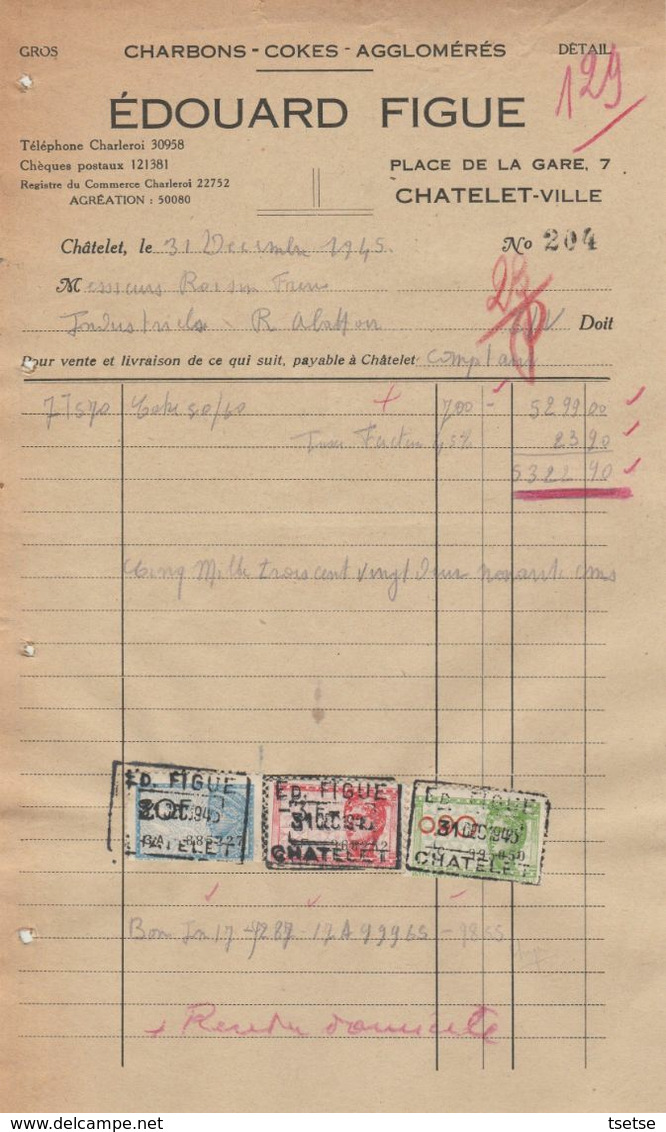 GROS CHARBONS - COKES - AGGLOMÉRÉS DÉTAIL
129
ÉDOUARD FIGUE
Téléphone Charleroi 30958
Chèques postaux 121381
Registre du Commerce Charleroi 22752
AGRÉATION : 50080
PLACE DE LA GARE, 7
CHATELET-VILLE
Châtelet, le 31 Décembre 1945. No 204
Messieurs
Industriels R Doit
Pour vente et livraison de ce qui suit, payable à Châtelet Comptant
7T570 Coke 50/60 + 700 - 5299 00
Taxe 23 90
5322 90
Cinq Mille trois cent vingt deux nonante cms
ED. FIGUE
20F
CHATELET
ED. FIGUE
3F
31 DEC 1945
CHATELET
ED. FIGUE
0,90
31 DEC 1945
CHATELET
Bon
+ Rendu domicile
tsetse Delcampe.net